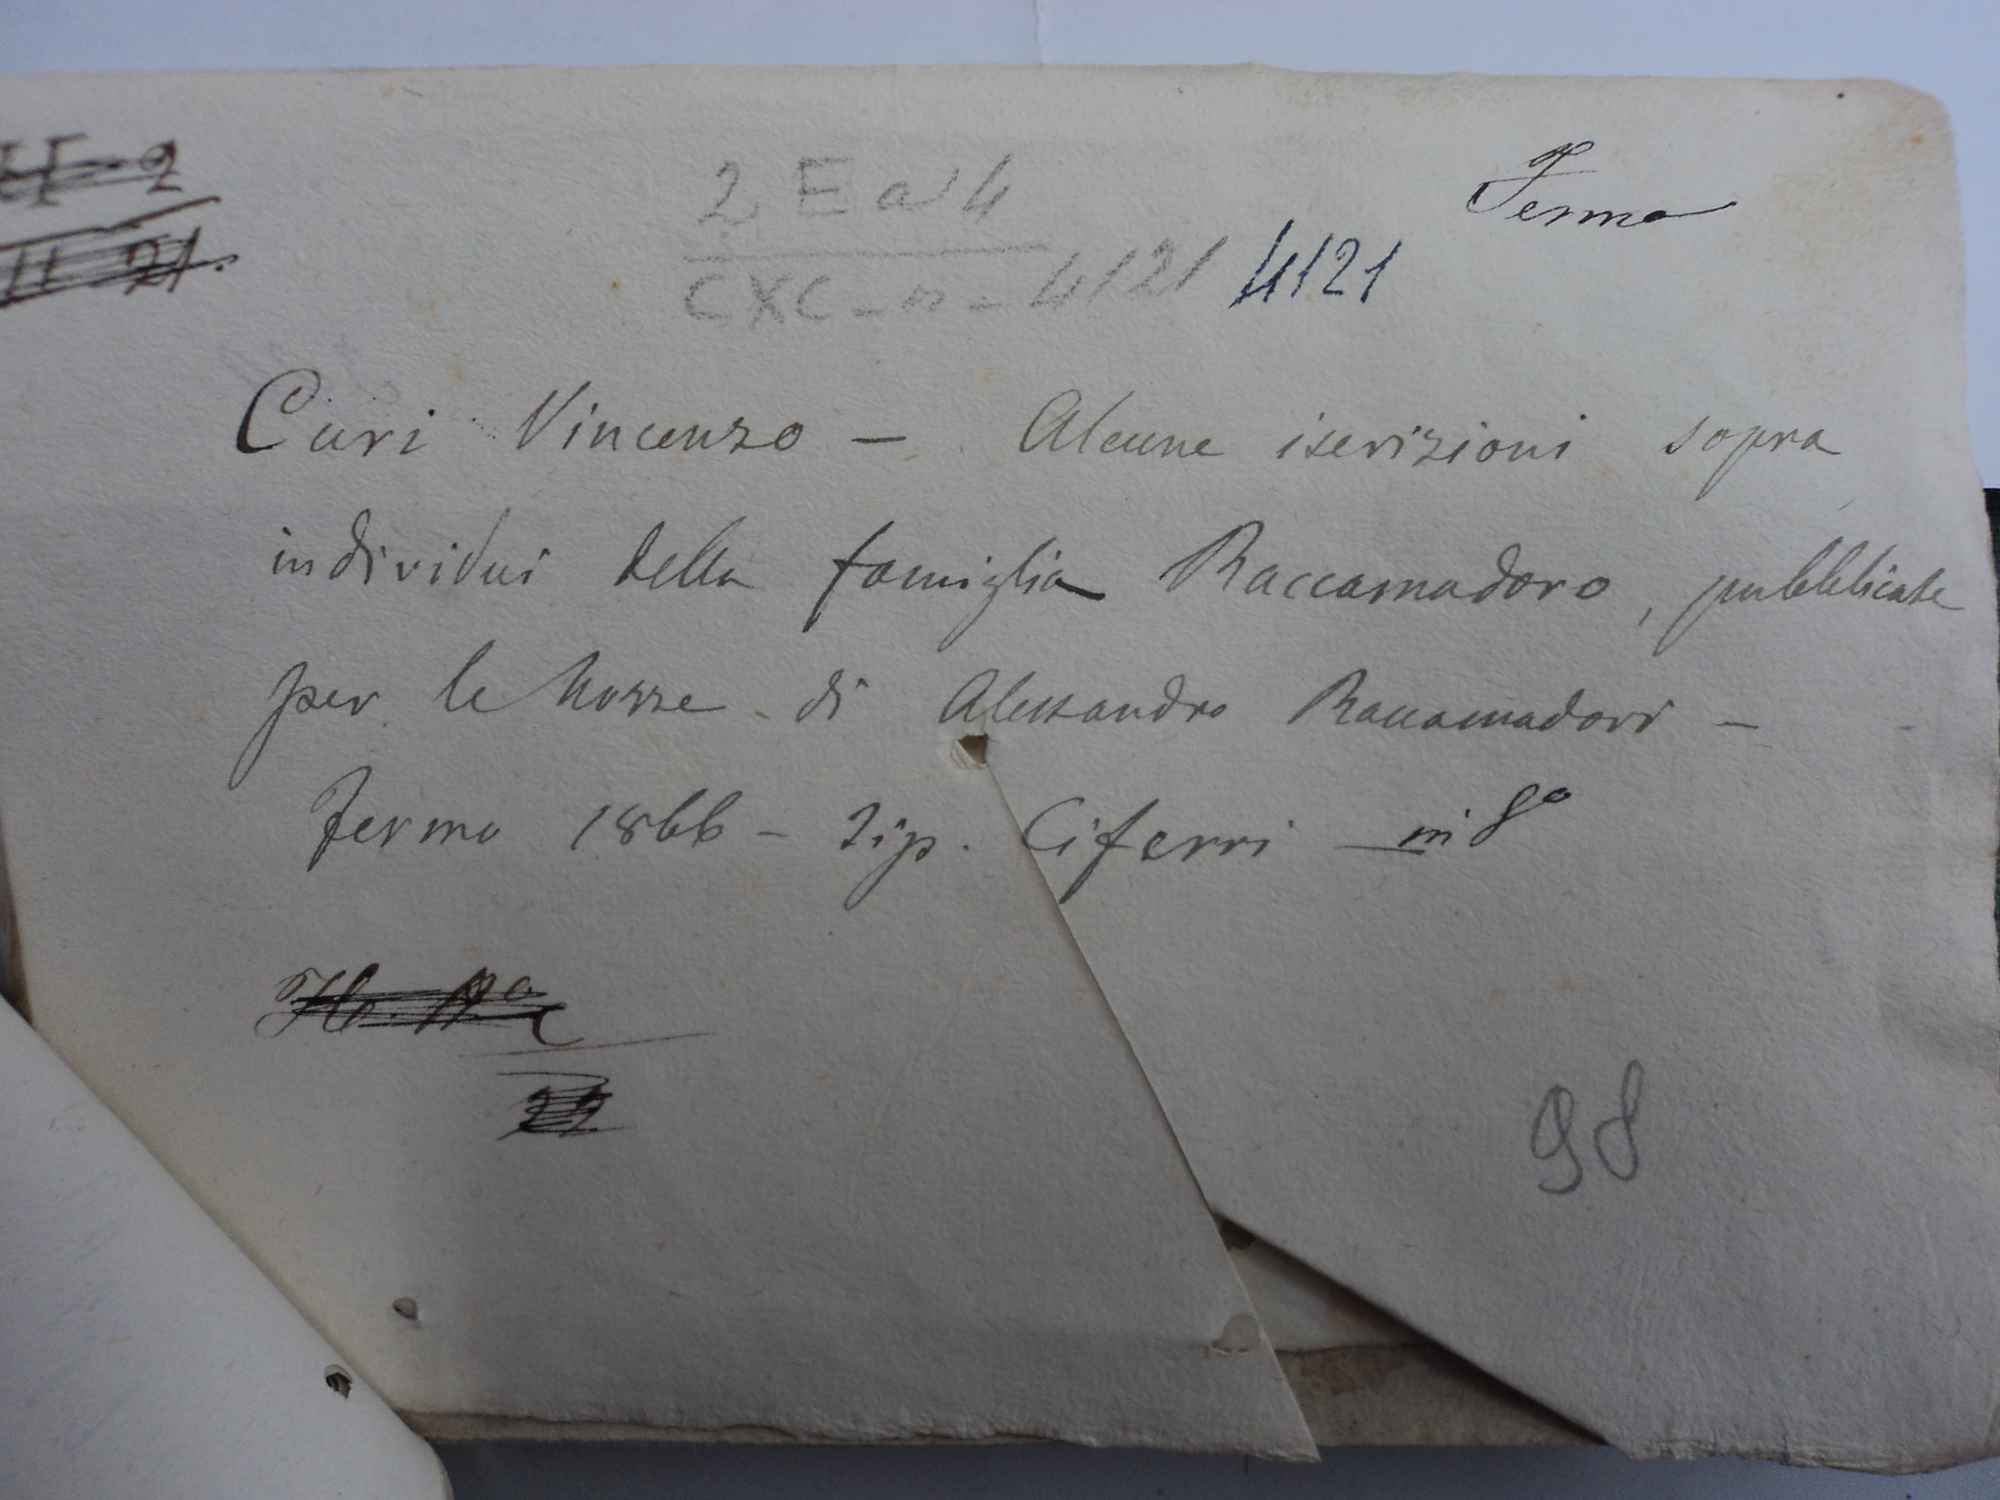 2
Fermo
2 E a 4
CXC - n - 4121 4121
21.
Curi Vincenzo - Alcune iscrizioni sopra
individui della famiglia Raccamadoro, pubblicate
per le Nozze di Alessandro Raccamadori -
Fermo 1866 - Tip. Ciferri in 8º
22
98